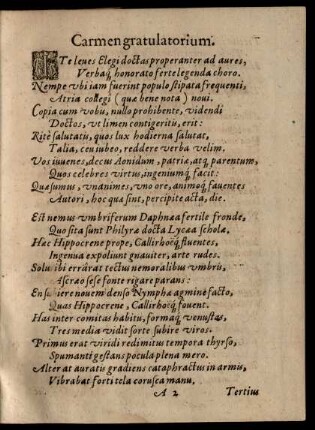 Carmen gratulatorium.
ITe leues Elegi doctas properanter ad aures,
Verbaq; honorato ferte legenda choro.
Nempe vbi iam fuerint populo stipata frequenti,
Atria collegi (quæ bene nota) noui.
Copia cum vobis, nullo prohibente, videndi
Doctos, vt limen contigeritis, erit:
Ritè salutatis, quos lux hodierna salutat,
Talia, ceu iubeo, reddere verba velim.
Vos iuuenes, decus Aonidum, patriæ, atq; parentum,
Quos celebres virtus, ingeniumq; facit:
Quæsumus, vnanimes, vno ore, animoq; fauentes
Autori, hoc qua sint, percipite acta, die.
Est nemus vmbriferum Daphnæa fertile fronde,
Quo sita sunt Philyræ docta Lycæa scholæ,
Hæc Hippocrene prope, Callirhoeq; fluentes,
Ingenia expoliunt guauiter, arte rudes.
Solus ibi errârat tectus nemoralibus vmbris,
Ascræo sese fonte rigare parans:
En subiere nouem denso Nymphæ agmine facto,
Quas Hippocrene, Callirhoeq; fouent.
Has inter comitas habitu, formaq; venustas,
Tres media vidit forte subire viros.
Primus erat viridi redimitus tempora thyrso,
Spumanti gestans pocula plena mero.
Alter at auratis gradiens cataphractus in armis,
Vibrabat forti tela corusca manu.
A 2 Tertius